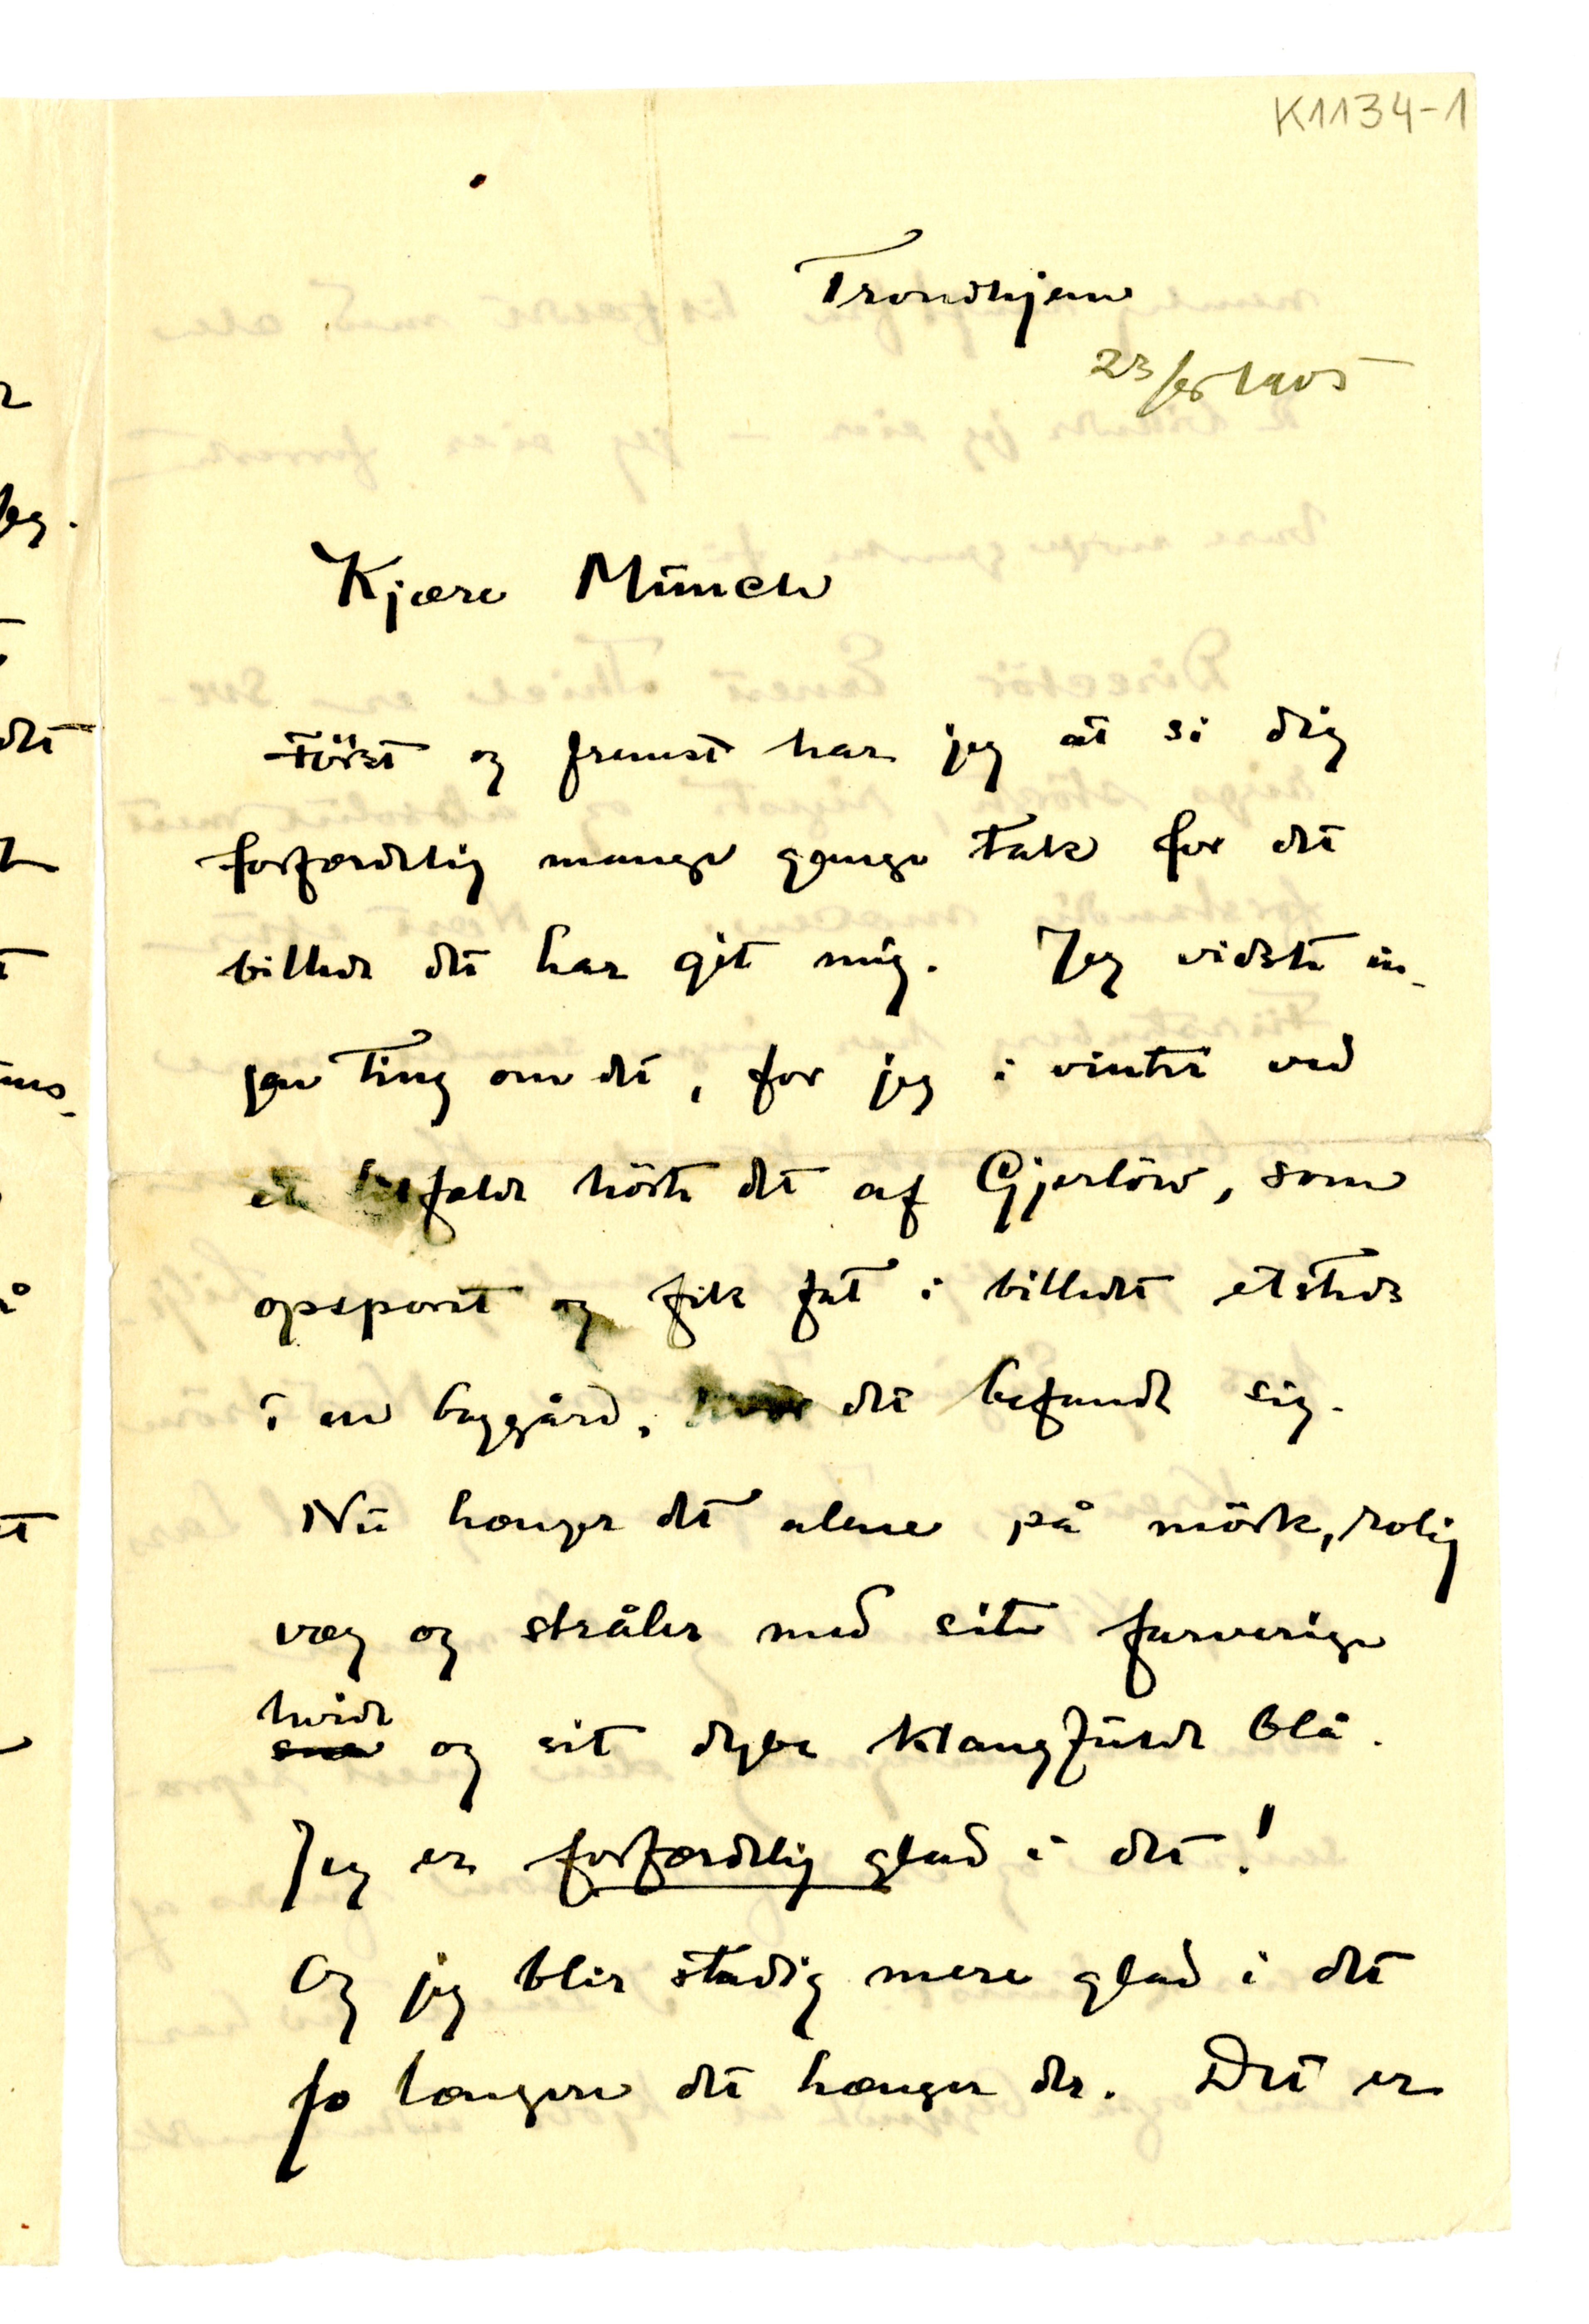 K1134-1
Trondhjem
23/ 1905
Kjære Münch
Först og fremst har jeg at si dig
forfærdelig mange gange tak for det
billede du har git mig. Jeg vidste in-
gen Ting om det, før jeg i vinter ved
et tilfælde hörte det af Gjerlöw, som
opsporet og fik fat i billedet etsteds
i en baggård, hvor det befandt sig.
Nü hænger det alene på mörk, rolig
væg og stråler med sit farverige
hvide
og sit dybe klangfülde blå.
Jeg er forfærdelig glad i det!
Og jeg blir stadig mere glad i det
jo længere det hænger der. Det er